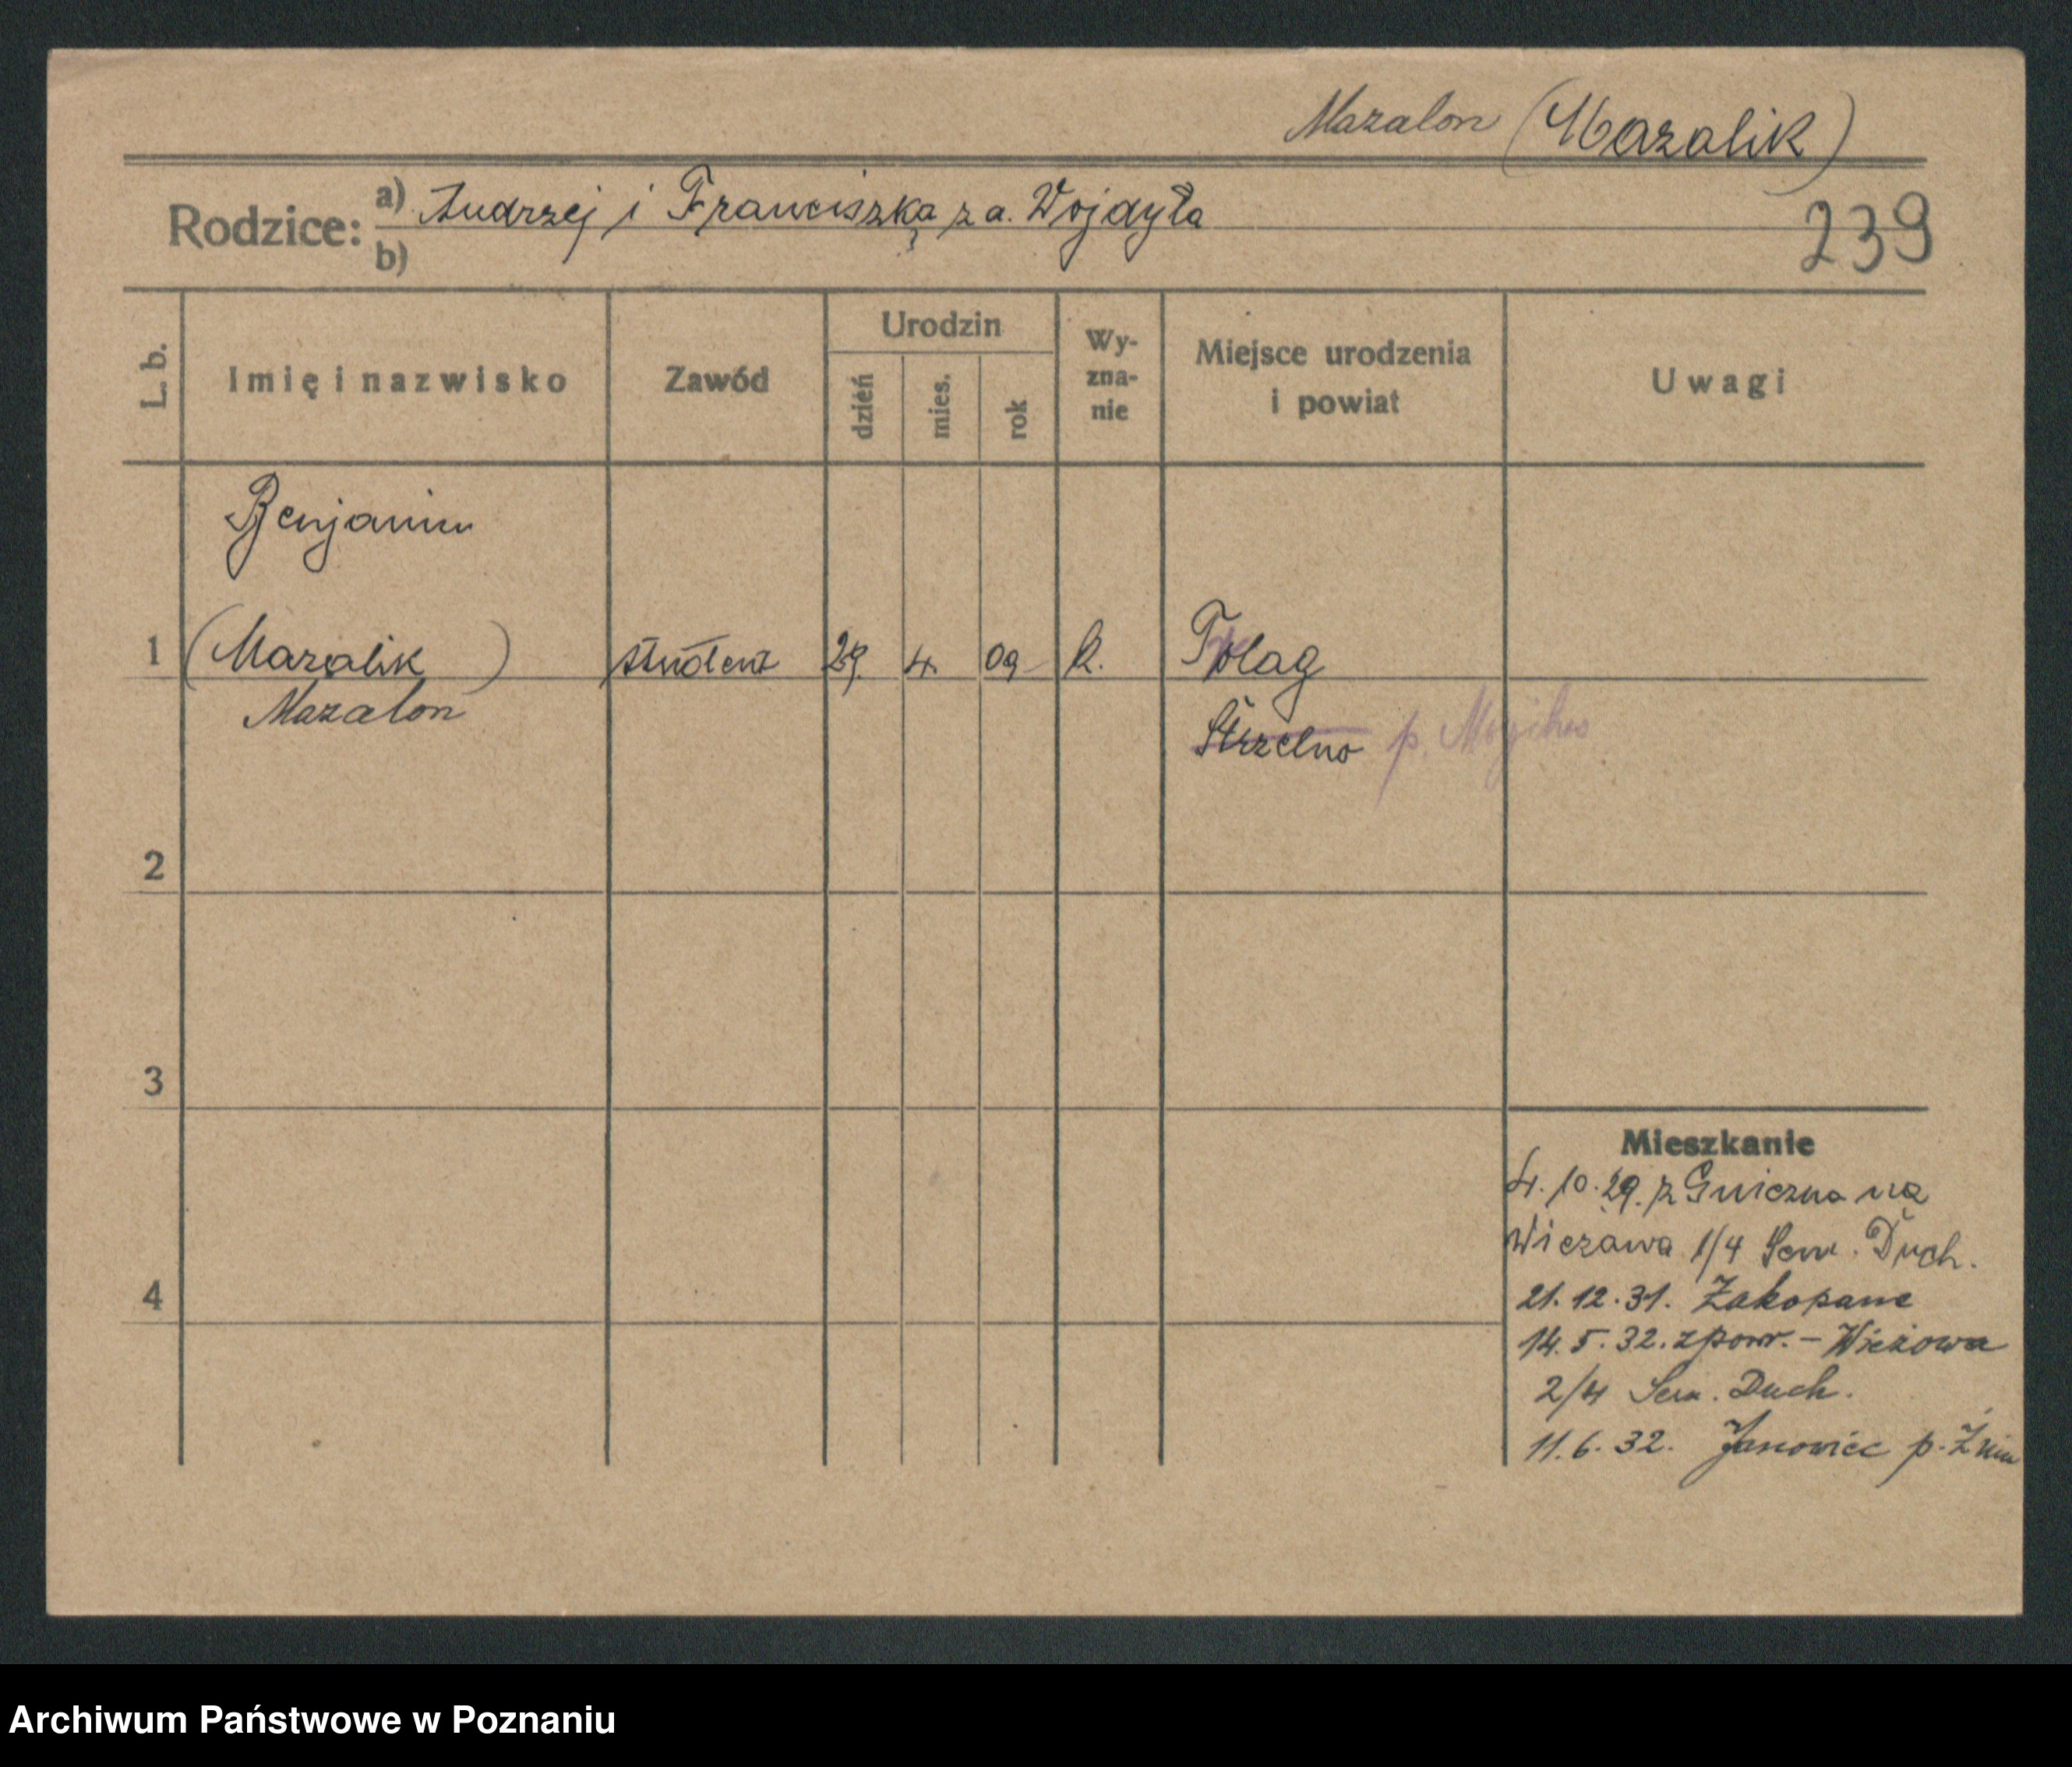 Mazalon (Mazalik)
Rodzice: a) Andrzej i Franciszką z a. Wojdyła
b)
239
L. b.
Imię i nazwisko
Zawód
Urodzin
dzień
mies.
rok
Wy-
zna-
nie
Miejsce urodzenia
i powiat
Uwagi
Benjamin
1 (Mazalik) student 29. 4. 09 k.
Mazalon
Strzelno p.
2
3
4
Mieszkanie
4. 10. 29. z Gniezna na
Wieżawa 1/4 Sem. Duch.
21. 12. 31. Zakopane
14. 5. 32. z powr. - Wieżowa
2/4 Sem. Duch.
11. 6. 32. Janowiec p. Żnin
Archiwum Państwowe w Poznaniu